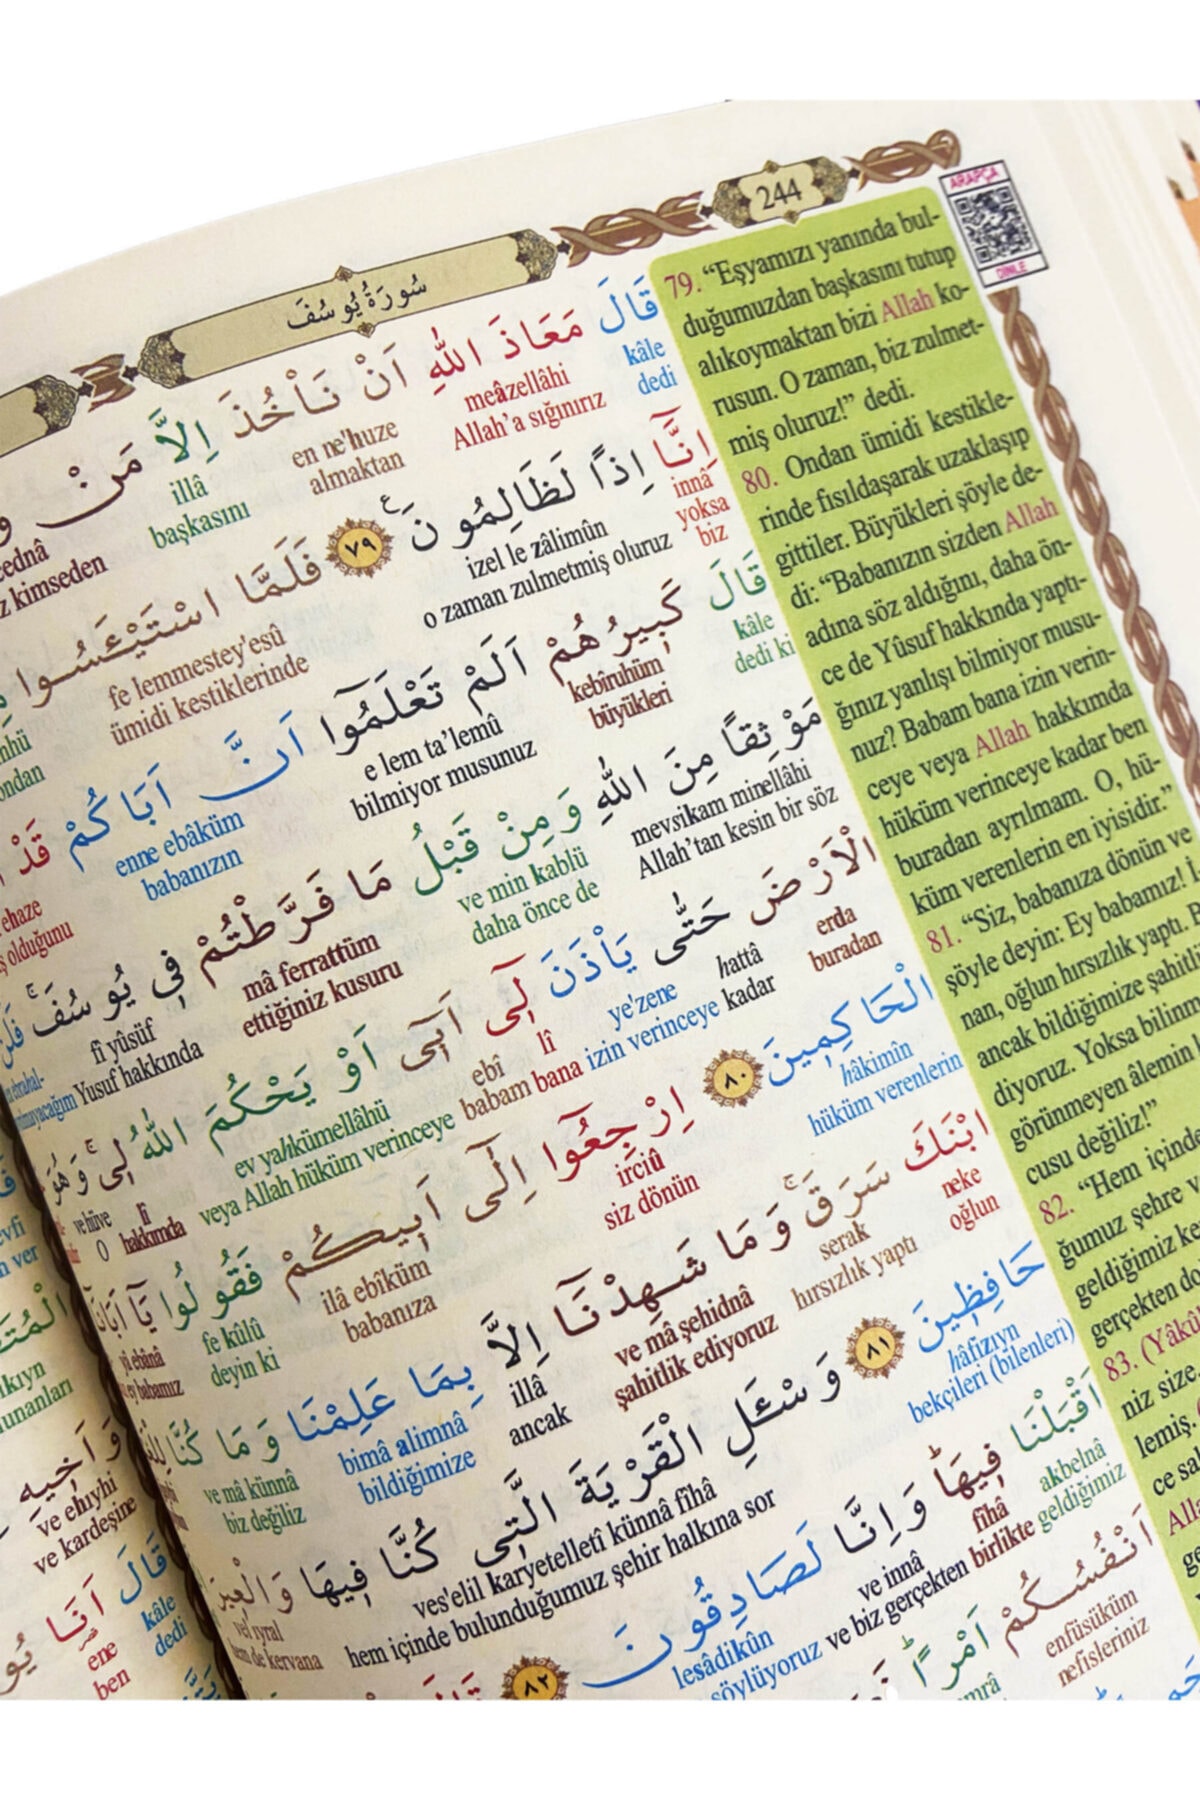 244
ARAPÇA
DİNLE
سُورَةُ يُوسُفَ
قَالَ مَعَاذَ اللّٰهِ اَنْ نَأْخُذَ اِلَّا مَنْ
kâle meâzellâhi en ne'huze illâ
dedi Allah'a sığınırız almaktan başkasını
z kimseden
اِنَّٓا اِذًا لَظَالِمُونَ ﴿٧٩﴾ فَلَمَّا اسْتَيْـَٔسُوا
innâ izel le zâlimûn fe lemmestey'esû
yoksa biz o zaman zulmetmiş oluruz ümidi kestiklerinde
ondan
قَالَ كَبِيرُهُمْ اَلَمْ تَعْلَمُٓوا اَنَّ اَبَاكُمْ قَدْ
kâle kebîruhüm e lem ta'lemû enne ebâküm
dedi ki büyükleri bilmiyor musunuz babanızın
ehaze
olduğunu
مَوْثِقًا مِنَ اللّٰهِ وَمِنْ قَبْلُ مَا فَرَّطْتُمْ فِي يُوسُفَ
mevsikam minellâhi ve min kablü mâ ferrattüm fî yûsüf
Allah'tan kesin bir söz daha önce de ettiğiniz kusuru Yusuf hakkında
الْاَرْضَ حَتّٰى يَأْذَنَ لِٓي اَبِٓي اَوْ يَحْكُمَ اللّٰهُ لِي وَهُوَ
erda hattâ ye'zene lî ebî ev yahkümellâhü lî ve hüve
buradan kadar izin verinceye bana babam veya Allah hüküm verinceye hakkımda O
الْحَاكِمِينَ ﴿٨٠﴾ اِرْجِعُٓوا اِلٰٓى اَبِيكُمْ فَقُولُوا يَٓا اَبَانَٓا
hâkimîn irciû ilâ ebîküm fe kûlû yâ ebânâ
hüküm verenlerin siz dönün babanıza deyin ki ey babamız
ابْنَكَ سَرَقَ وَمَا شَهِدْنَٓا اِلَّا بِمَا عَلِمْنَا وَمَا كُنَّا
neke serak ve mâ şehidnâ illâ bimâ alimnâ ve mâ künnâ
oğlun hırsızlık yaptı şahitlik ediyoruz ancak bildiğimize biz değiliz
حَافِظِينَ ﴿٨١﴾ وَسْـَٔلِ الْقَرْيَةَ الَّتِي كُنَّا فِيهَا وَالْعِيرَ
hâfizıyn ves'elil karyetelletî künnâ fîhâ vel ıyral
bekçileri (bilenleri) hem içinde bulunduğumuz şehir halkına sor hem de kervana
اَقْبَلْنَا فِيهَا وَاِنَّا لَصَادِقُونَ ﴿٨٢﴾
akbelnâ fîhâ ve innâ lesâdikûn
geldiğimiz birlikte ve biz gerçekten söylüyoruz
اَنْفُسُكُمْ اَمْرًا
enfüsüküm
nefisleriniz
79. “Eşyamızı yanında bul-
duğumuzdan başkasını tutup
alıkoymaktan bizi Allah ko-
rusun. O zaman, biz zulmet-
miş oluruz!” dedi.
80. Ondan ümidi kestikle-
rinde fısıldaşarak uzaklaşıp
gittiler. Büyükleri şöyle de-
di: “Babanızın sizden Allah
adına söz aldığını, daha ön-
ce de Yûsuf hakkında yaptı-
ğınız yanlışı bilmiyor musu-
nuz? Babam bana izin verin-
ceye veya Allah hakkımda
hüküm verinceye kadar ben
buradan ayrılmam. O, hü-
küm verenlerin en iyisidir.”
81. “Siz, babanıza dönün ve
şöyle deyin: Ey babamız! İ
nan, oğlun hırsızlık yaptı.
ancak bildiğimize şahitli
diyoruz. Yoksa bilinm
görünmeyen âlemin
cusu değiliz!”
82. “Hem içinde
ğumuz şehre v
geldiğimiz ke
gerçekten do
83. (Yâkû
niz size,
lemiş.
ce sa
Alla
ge
ve kardeşine
قَالَ اَنَا يُو
kâle ene
dedi ben